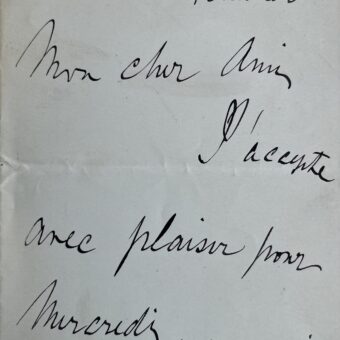 Mon cher Ami,
J'accepte
avec plaisir pour
Mercredi